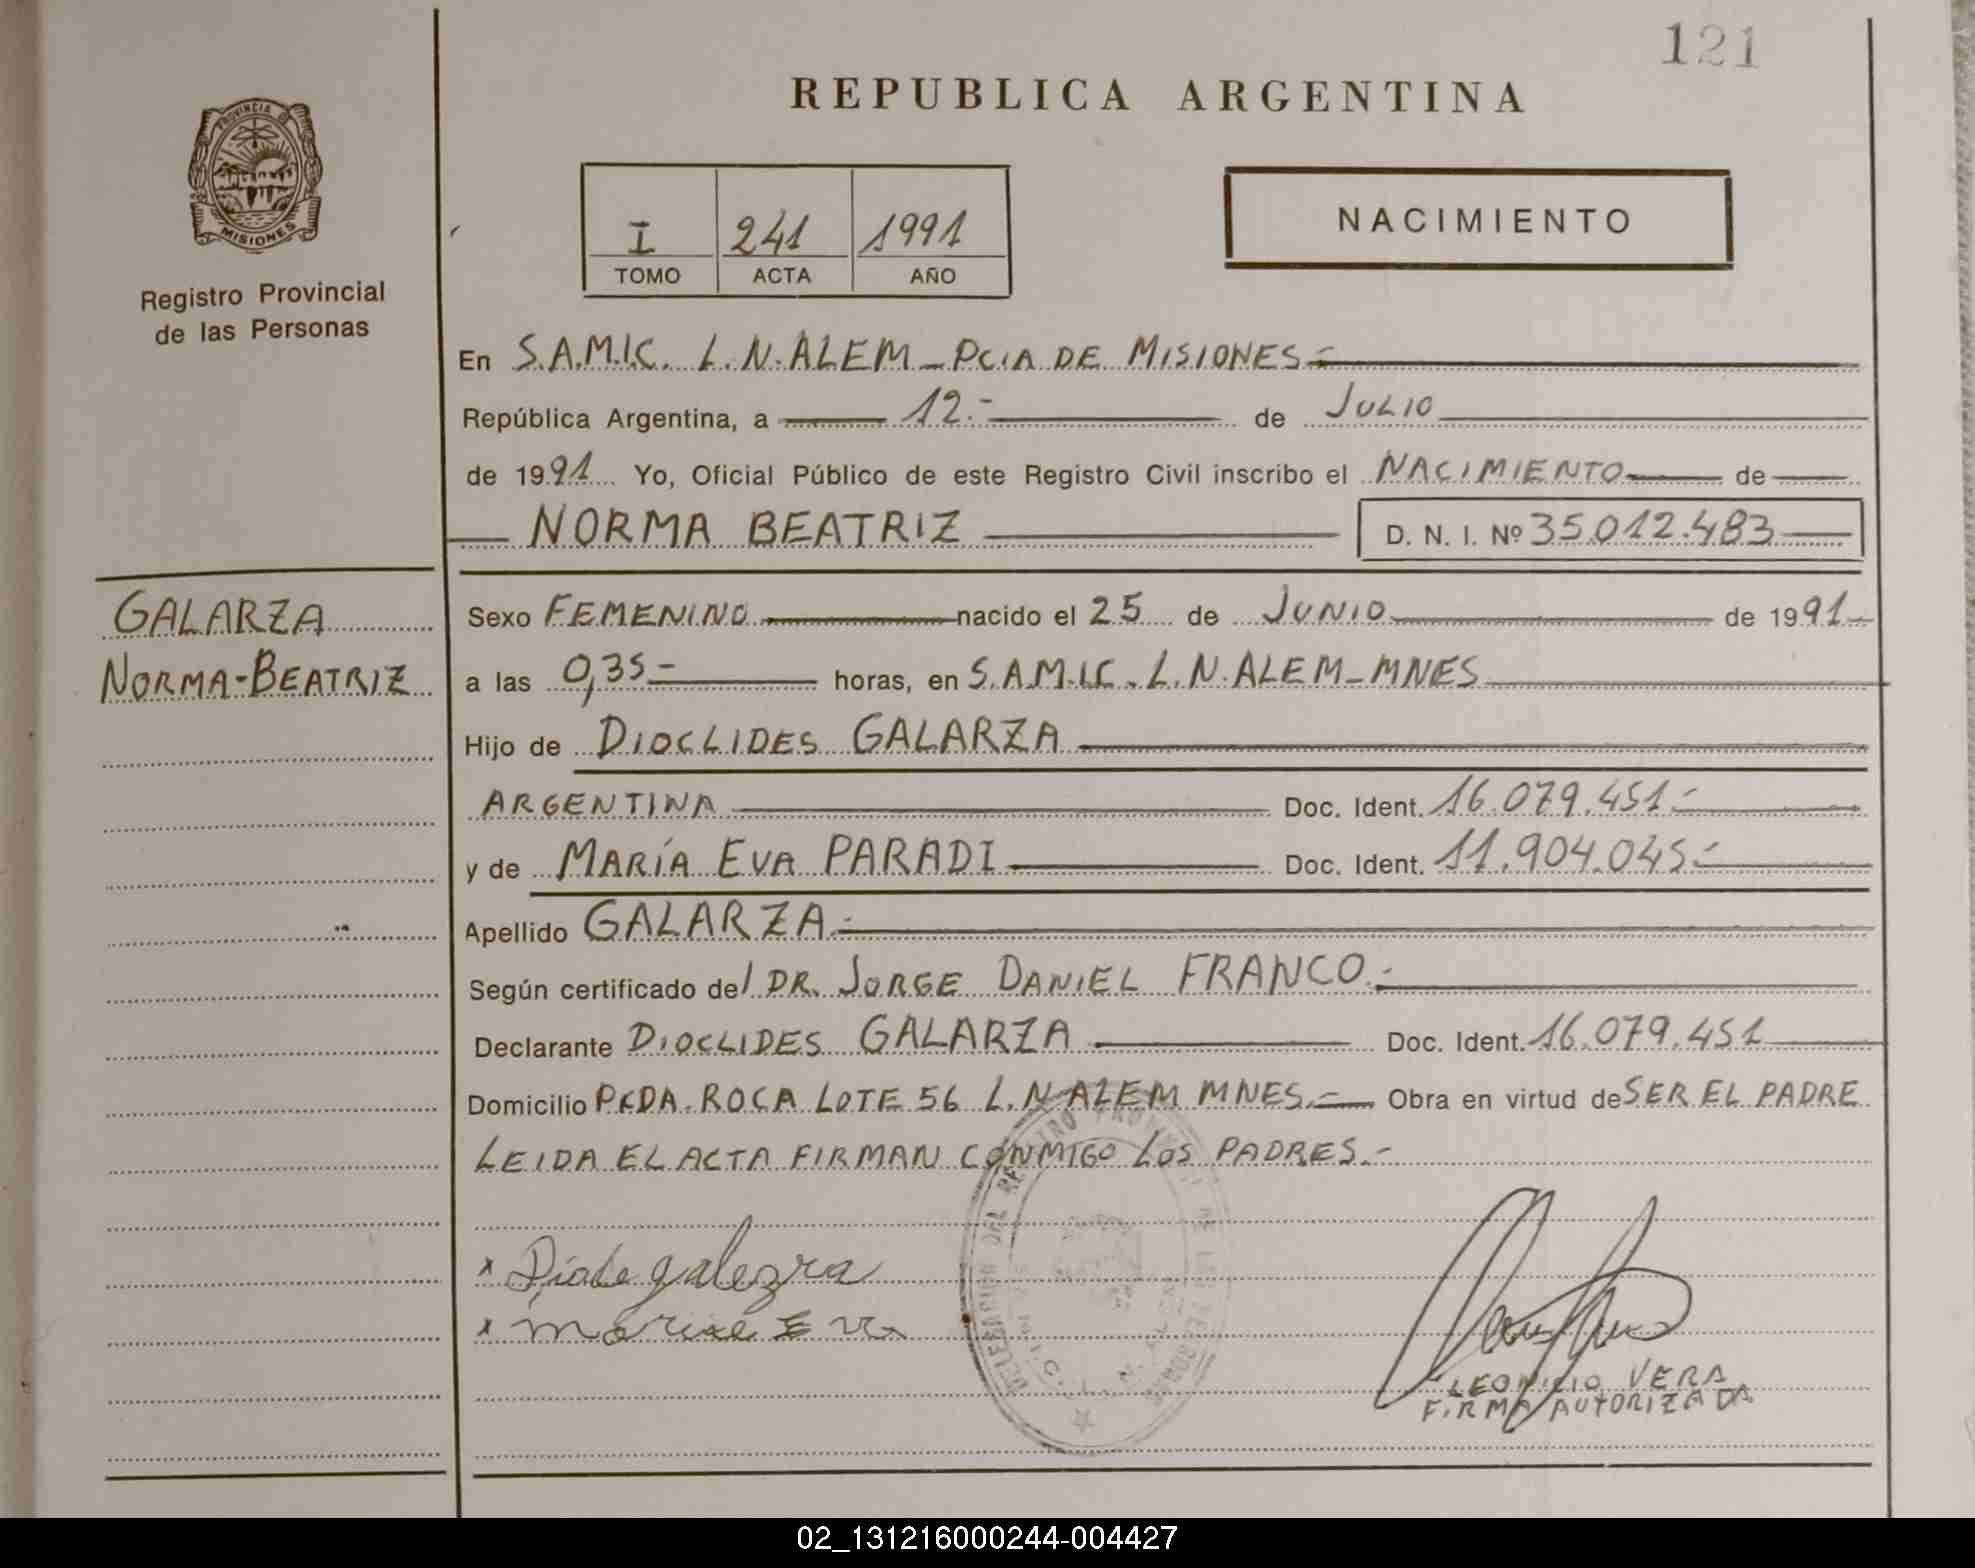 121
REPUBLICA ARGENTINA
PROVINCIA D
MISIONES
Registro Provincial
de las Personas
I 241 1991
TOMO ACTA AÑO
NACIMIENTO
En S.A.M.I.C. L.N.ALEM_PCIA DE MISIONES=
República Argentina, a 12.- de JULIO
de 1991 Yo, Oficial Público de este Registro Civil inscribo el NACIMIENTO de
NORMA BEATRIZ D. N. I. Nº 35.012.483
GALARZA
NORMA-BEATRIZ
Sexo FEMENINO nacido el 25 de JUNIO de 1991
a las 0,35- horas, en S.A.M.I.C. L.N.ALEM_MNES
Hijo de DIOCLIDES GALARZA
ARGENTINA Doc. Ident. 16.079.451.-
y de MARÍA EVA PARADI Doc. Ident. 11.904.045.-
Apellido GALARZA.-
Según certificado del DR. JORGE DANIEL FRANCO.-
Declarante DIOCLIDES GALARZA Doc. Ident. 16.079.451
Domicilio PCDA. ROCA LOTE 56 L.N ALEM MNES.- Obra en virtud de SER EL PADRE
LEIDA EL ACTA FIRMAN CONMIGO LOS PADRES.-
DEL REGISTRO PROVINCIAL DE LAS PERSONAS
x galezra
x Eva
LEONICIO VERA
FIRMA AUTORIZADA
02_131216000244-004427